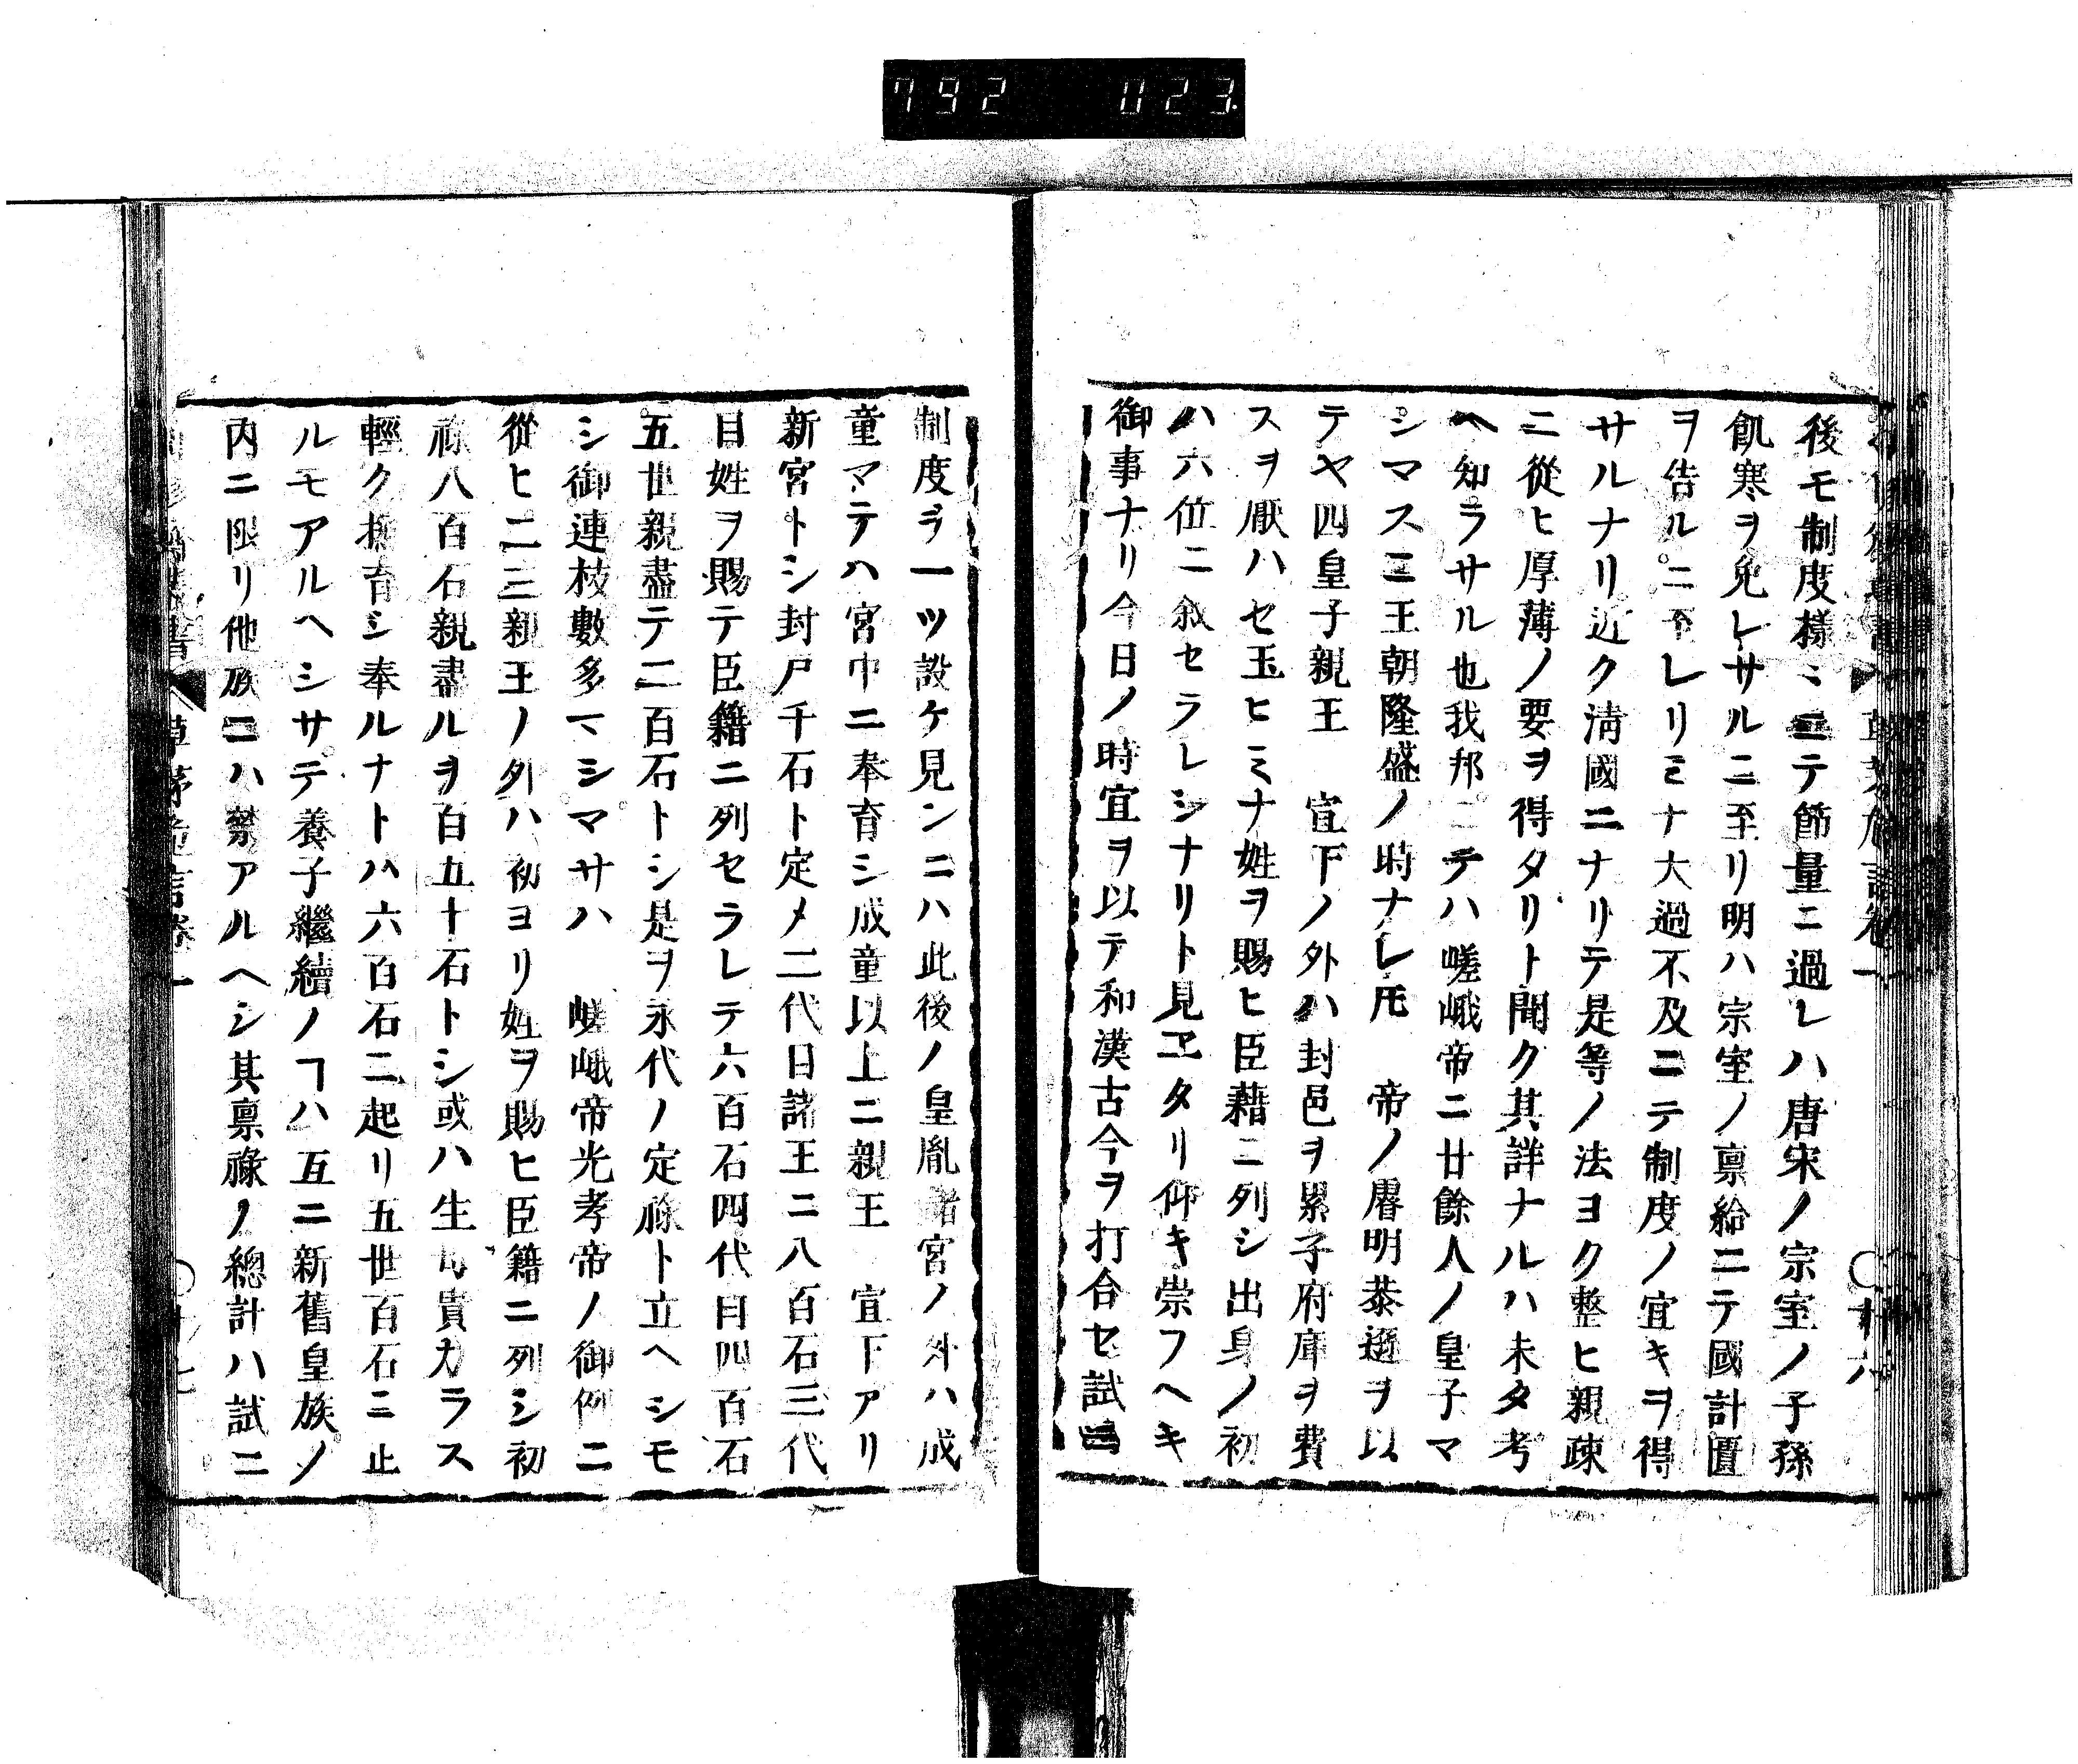 792 023
後モ制度様〻ニテ節量ニ過レハ唐宋ノ宗室ノ子孫
飢寒ヲ免レサルニ至リ明ハ宗室ノ禀給ニテ國計匱
ヲ告ルニ至レリミナ大過不及ニテ制度ノ宜キヲ得
サルナリ近ク淸國ニナリテ是等ノ法ヨク整ヒ親疎
ニ從ヒ厚薄ノ要ヲ得タリト聞ク其詳ナルハ未タ考
ヘ知ラサル也我邦ニテハ嵯峨帝ニ廿餘人ノ皇子マ
シマス王朝隆盛ノ時ナレ𪜈 帝ノ睿明恭遜ヲ以
テヤ四皇子親王 宣下ノ外ハ封邑ヲ累子府庫ヲ費
スヲ厭ハセ玉ヒミナ姓ヲ賜ヒ臣藉ニ列シ出身ノ初
ハ六位ニ叙セラレシナリト見ヱタリ仰キ崇フヘキ
御事ナリ今日ノ時宜ヲ以テ和漢古今ヲ打合セ試ニ
制度ヲ一ツ設ケ見ンニハ此後ノ皇胤諸宮ノ外ハ成
童マテハ宮中ニ奉育シ成童以上ニ親王 宣下アリ
新宮トシ封戸千石ト定メ二代目諸王ニ八百石三代
目姓ヲ賜テ臣籍ニ列セラレテ六百石四代目四百石
五世親盡テ二百石トシ是ヲ永代ノ定祿ト立ヘシモ
シ御連枝數多マシマサハ 嵯峨帝光孝帝ノ御例ニ
從ヒ二三親王ノ外ハ初ヨリ姓ヲ賜ヒ臣籍ニ列シ初
祿八百石親盡ルヲ百五十石トシ或ハ生母貴カラス
輕ク撫育シ奉ルナトハ六百石ニ起リ五世百石ニ止
ルモアルヘシサテ養子繼續ノヿハ互ニ新舊皇族ノ
内ニ限リ他族ニハ禁アルヘシ其禀祿ノ總計ハ試ニ
草茅危言卷一